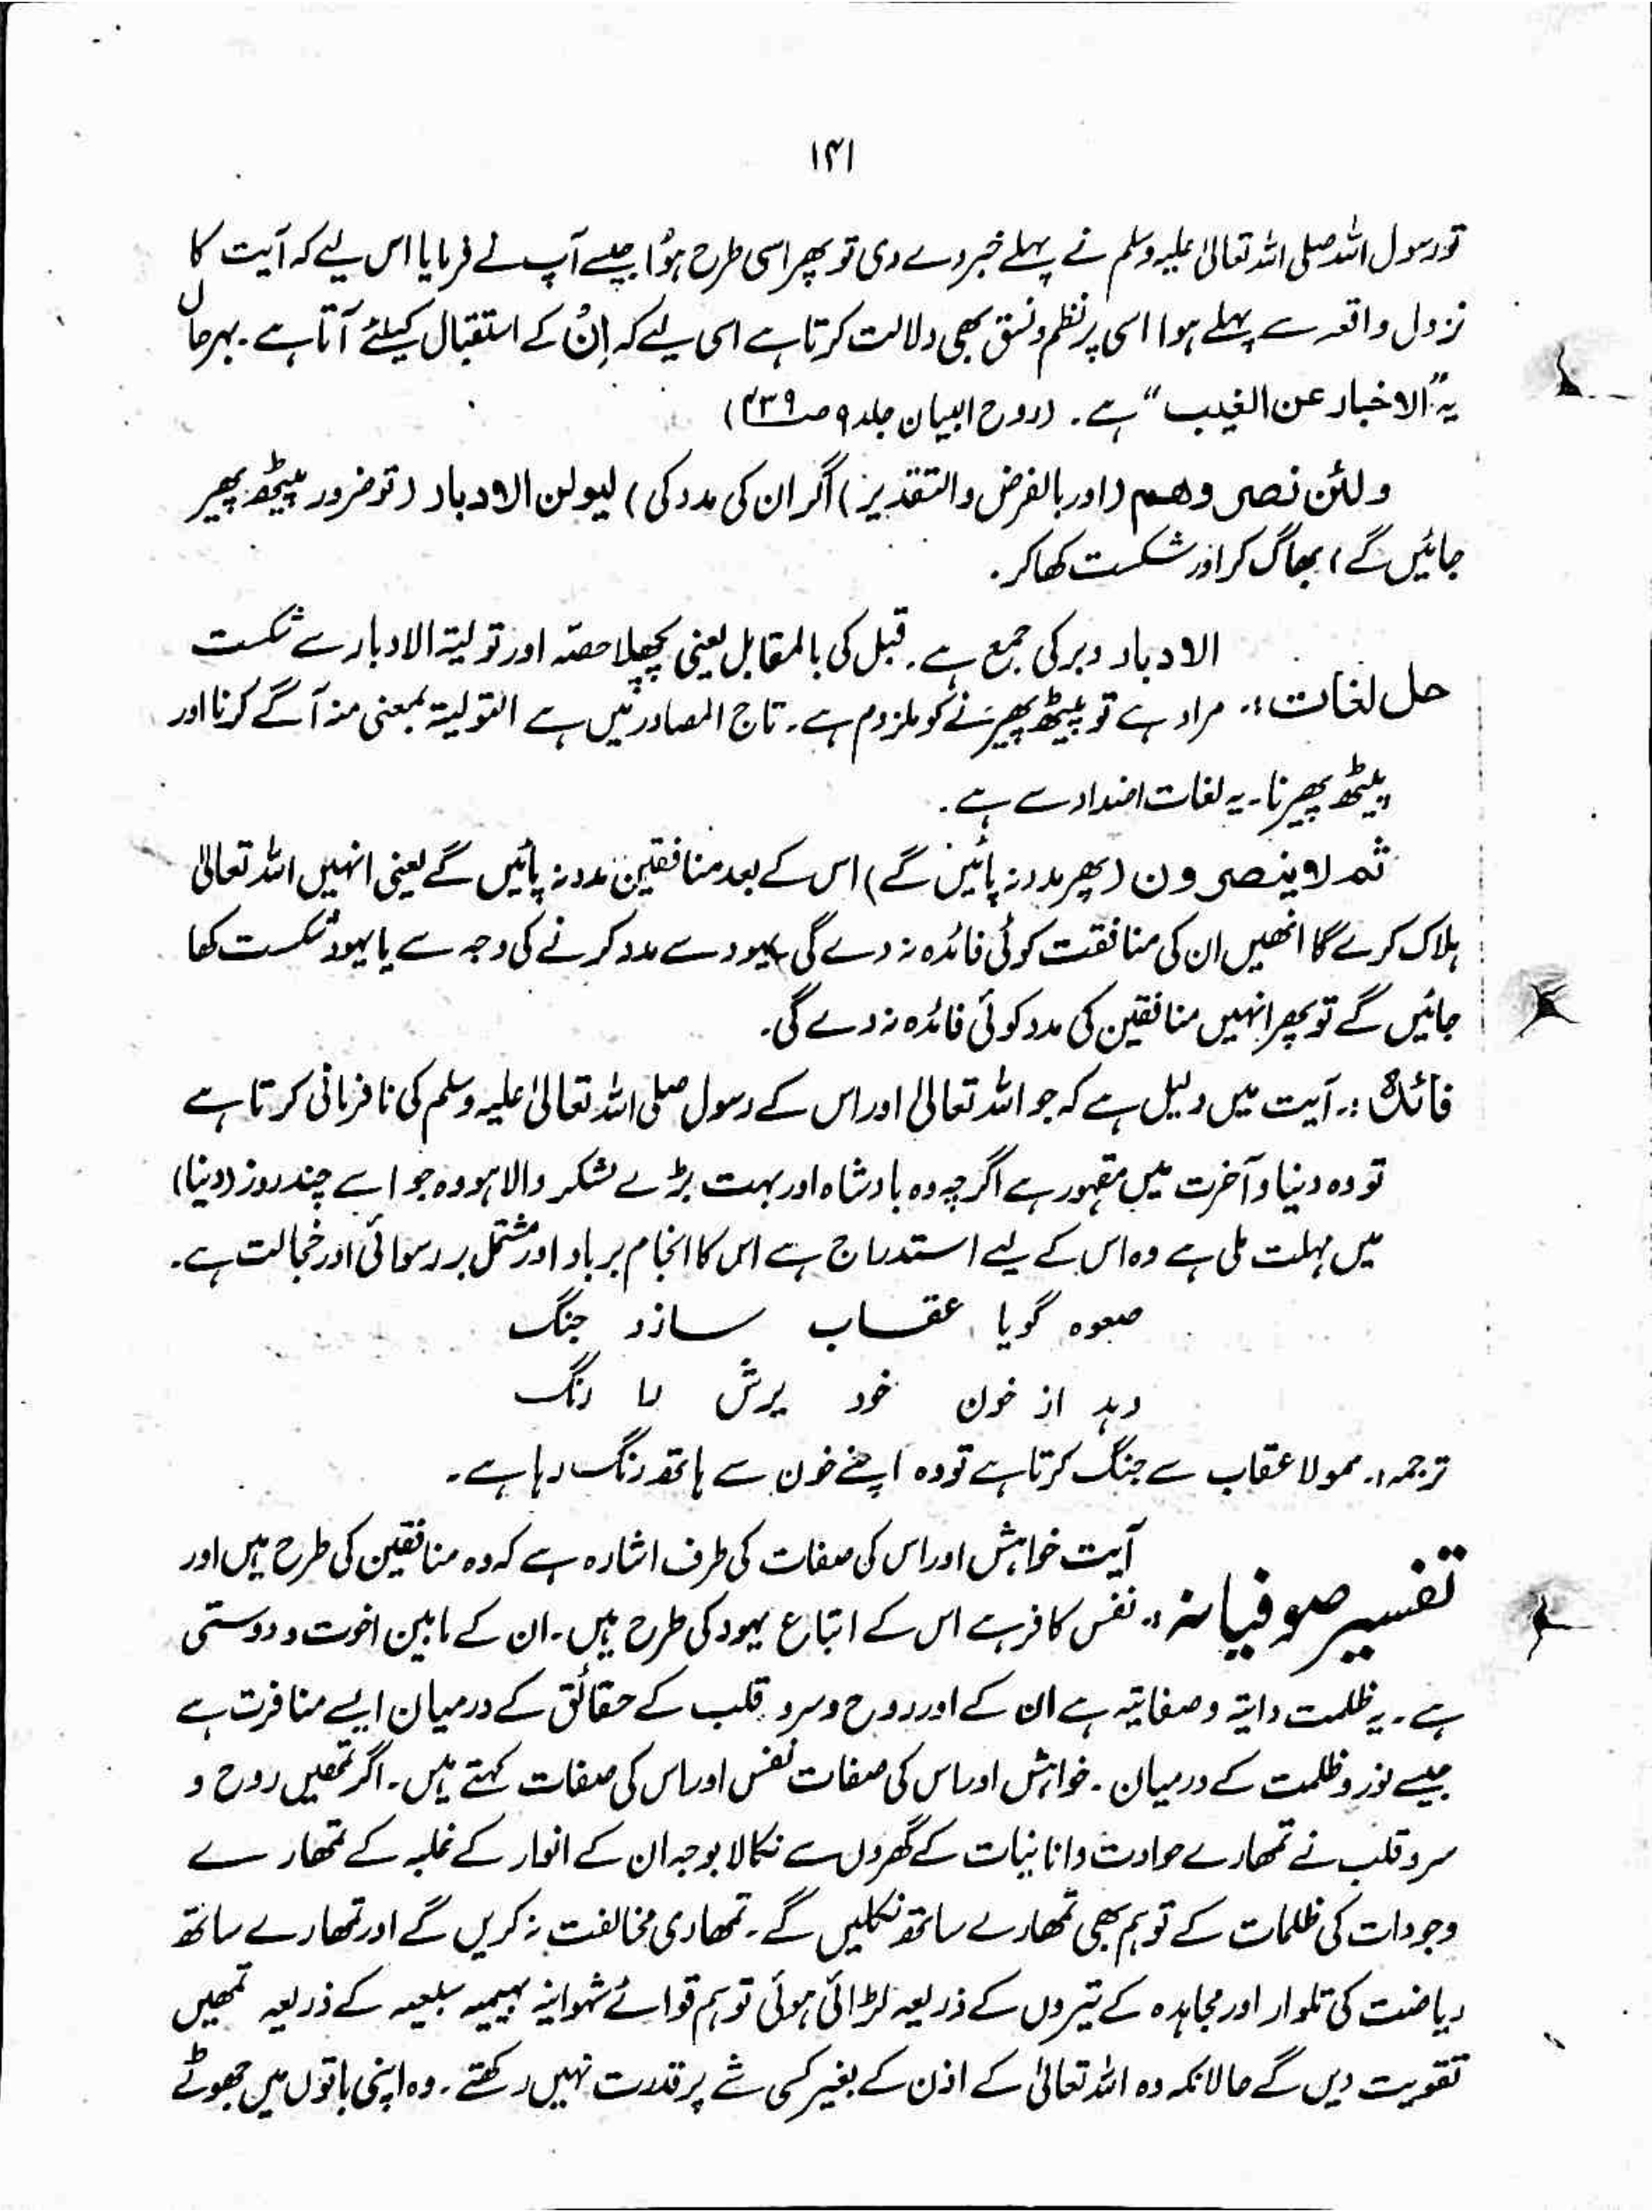 ۱۴۱
تو رسول اللہ صلی اللہ تعالیٰ علیہ وسلم نے پہلے خبر دے دی تو پھر اسی طرح ہوُا جیسے آپ نے فرمایا اس لیے کہ آیت کا
نزول واقعہ سے پہلے ہوا اسی پر نظم و نسق بھی دلالت کرتا ہے اسی لیے کہ اِنْ کے استقبال کیلئے آتا ہے ۔ بہرحال
یہ "الاخبار عن الغیب" ہے ۔ (روح البیان جلد ۹ صـ ۴۳۹)
ولئن نصروھم (اور بالفرض والتقدیر) اگر ان کی مدد کی) لیولن الادبار (تو ضرور پیٹھ پھیر
جائیں گے) بھاگ کر اور شکست کھا کر ۔
الادبار دبر کی جمع ہے ۔ قبل کی بالمقابل یعنی پچھلا حصّہ اور تولیۃ الادبار سے شکست
حل لغات :۔ مراد ہے تو پیٹھ پھیرنے کو ملزوم ہے ۔ تاج المصادر میں ہے التولیۃ بمعنی منہ آگے کرنا اور
پیٹھ پھیرنا ۔ یہ لغات اضداد سے ہے ۔
ثم لاینصرون (پھر مدد نہ پائیں گے) اس کے بعد منافقین مدد نہ پائیں گے یعنی انہیں اللہ تعالیٰ
ہلاک کرے گا انھیں ان کی منافقت کوئی فائدہ نہ دے گی یہود سے مدد کرنے کی وجہ سے یا یہود شکست کھا
جائیں گے تو پھر انہیں منافقین کی مدد کوئی فائدہ نہ دے گی ۔
فائدہ :۔ آیت میں دلیل ہے کہ جو اللہ تعالیٰ اور اس کے رسول صلی اللہ تعالیٰ علیہ وسلم کی نافرمانی کرتا ہے
تو وہ دنیا و آخرت میں مقہور ہے اگرچہ وہ بادشاہ اور بہت بڑے لشکر والا ہو وہ جو اسے چند روز (دنیا)
میں مہلت ملی ہے وہ اس کے لیے استدراج ہے اس کا انجام برباد اور مشتمل بر رسوائی اور خجالت ہے ۔
صعوہ گویا عقاب سازد جنگ
دہد از خون خود پرش را رنگ
ترجمہ :۔ ممولا عقاب سے جنگ کرتا ہے تو وہ اپنے خون سے ہاتھ رنگ رہا ہے ۔
آیت خواہش اور اس کی صفات کی طرف اشارہ ہے کہ وہ منافقین کی طرح ہیں اور
تفسیر صوفیانہ :۔ نفس کافر ہے اس کے اتباع یہود کی طرح ہیں ۔ ان کے مابین اخوت و دوستی
ہے ۔ یہ ظلمت ذاتیہ و صفاتیہ ہے ان کے اور روح و سر و قلب کے حقائق کے درمیان ایسے منافرت ہے
جیسے نور و ظلمت کے درمیان ۔ خواہش اور اس کی صفات نفس اور اس کی صفات کہتے ہیں ۔ اگر تمھیں روح و
سر و قلب نے تمھارے حوادث و انانیات کے گھروں سے نکالا بوجہ ان کے انوار کے غلبہ کے تمھارے
وجودات کی ظلمات کے تو ہم بھی تمھارے ساتھ نکلیں گے ۔ تمھاری مخالفت نہ کریں گے اور تمھارے ساتھ
ریاضت کی تلوار اور مجاہدہ کے تیروں کے ذریعہ لڑائی ہوئی تو ہم قوائے شہوانیہ بہیمیہ سبعیہ کے ذریعہ تمھیں
تقویت دیں گے حالانکہ وہ اللہ تعالیٰ کے اذن کے بغیر کسی شے پر قدرت نہیں رکھتے ۔ وہ اپنی باتوں میں جھوٹے